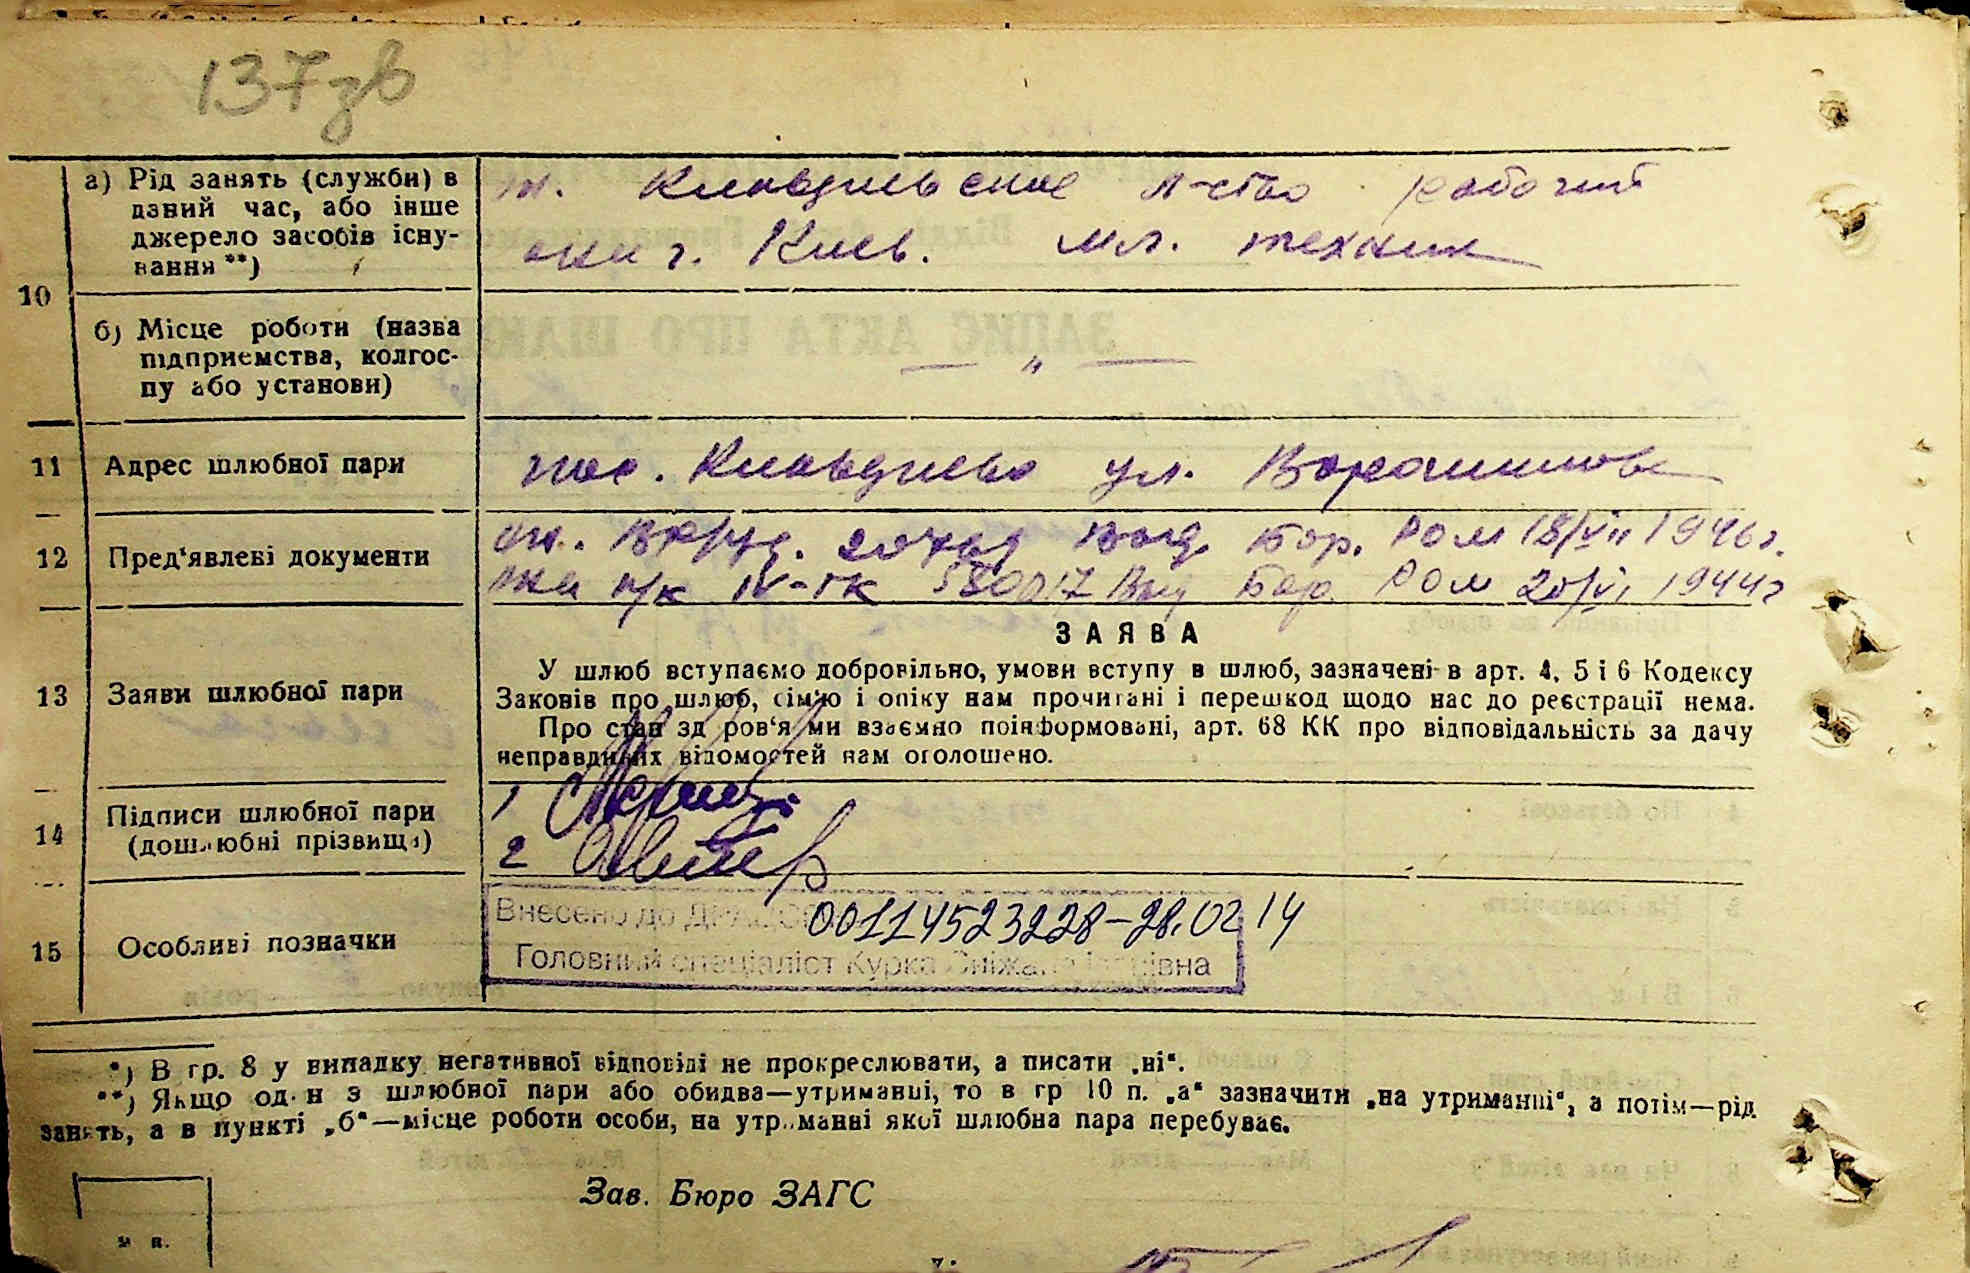 137зв
10
а) Рід занять (служби) в
даний час, або інше
джерело засобів існу-
вання **)
м. Клавдиевское л-ство рабочий
жен г. Киев. мл. техник
б) Місце роботи (назва
підприємства, колгос-
пу або установи)
— „ —
11 Адрес шлюбної пари
пос. Клавдиево ул. Ворошилова
12 Пред'явлені документи
Выд. Бор. РОМ 18/VII 1946г.
жен п/к IV-ГК 580017 Выд Бор. РОМ 20/VI 1944г
13 Заяви шлюбної пари
ЗАЯВА
У шлюб вступаємо добровільно, умови вступу в шлюб, зазначені в арт. 4, 5 і 6 Кодексу
Законів про шлюб, сім'ю і опіку нам прочитані і перешкод щодо нас до реєстрації нема.
Про стан здоров'я ми взаємно поінформовані, арт. 68 КК про відповідальність за дачу
неправдивих відомостей нам оголошено.
14 Підписи шлюбної пари
(дошлюбні прізвища)
1
2
15 Особливі позначки
Внесено до ДРАЦСГ 00114523228-28.02.14
Головний спеціаліст Курка Сніжана
*) В гр. 8 у випадку негативної відповіді не прокреслювати, а писати „ні“.
**) Якщо один з шлюбної пари або обидва—утриманці, то в гр 10 п. „а“ зазначити „на утриманні“, а потім—рід
занять, а в пункті „б“—місце роботи особи, на утриманні якої шлюбна пара перебуває.
Зав. Бюро ЗАГС
м п.